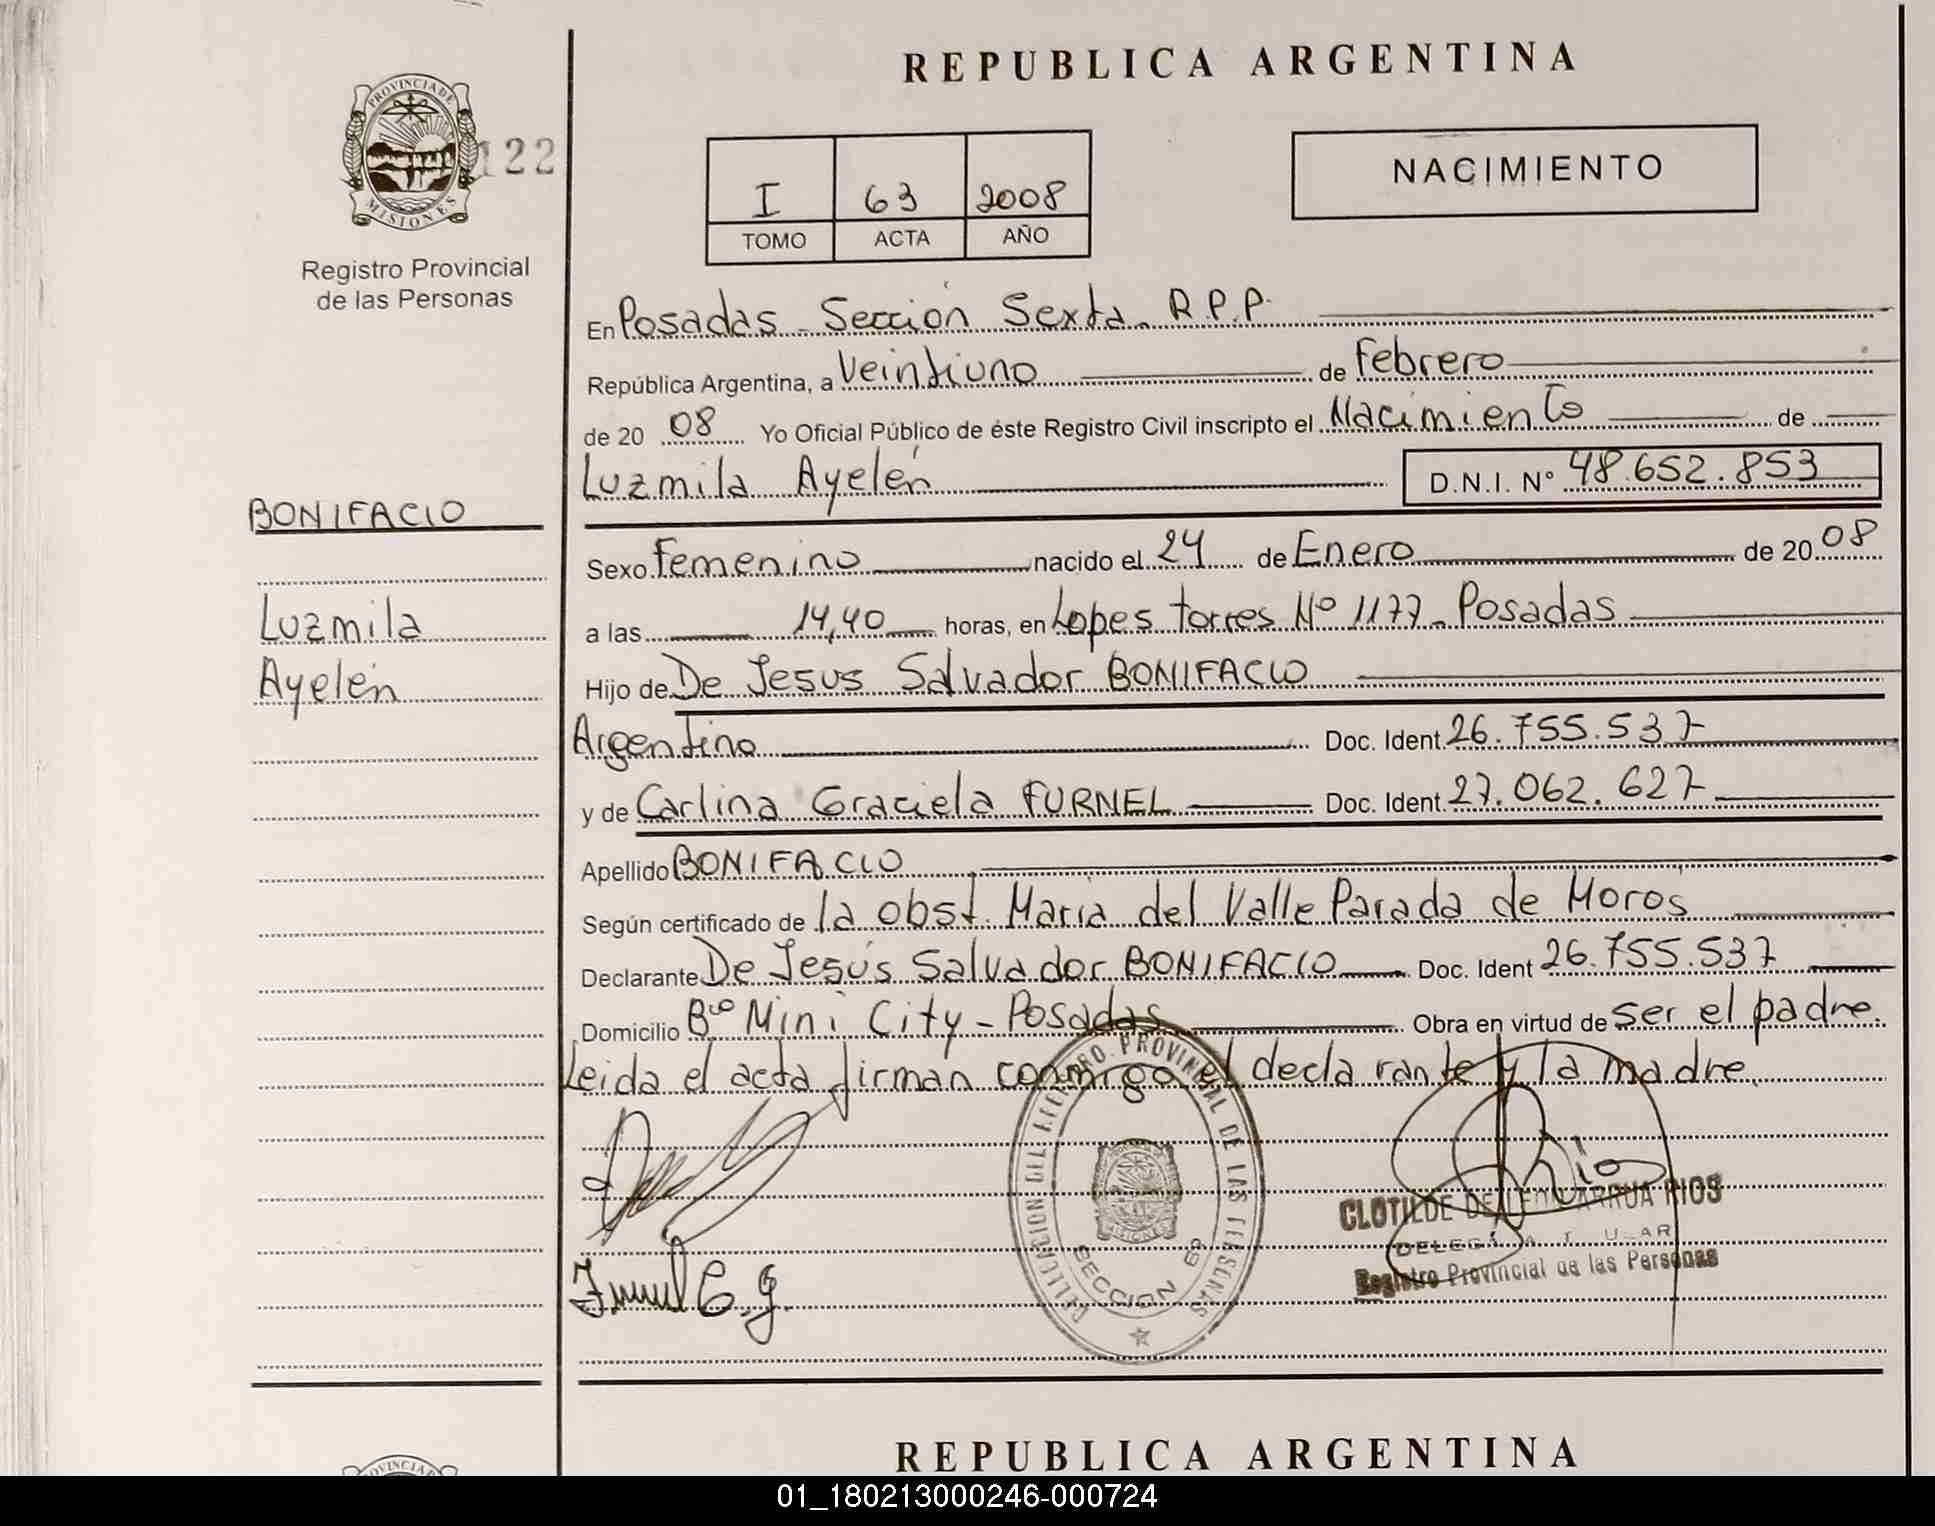 REPUBLICA ARGENTINA
PROVINCIA DE
MISIONES
122
Registro Provincial
de las Personas
I 63 2008
TOMO ACTA AÑO
NACIMIENTO
En Posadas - Sección Sexta. R.P.P.
República Argentina, a Veintiuno de Febrero
de 20 08 Yo Oficial Público de éste Registro Civil inscripto el Nacimiento de
Luzmila Ayelén D.N.I. Nº 48.652.853
BONIFACIO
Sexo Femenino nacido el 24 de Enero de 20 08
Luzmila
a las 14,40 horas, en Lopes Torres Nº 1177 - Posadas
Ayelén
Hijo de De Jesus Salvador BONIFACIO
Argentino Doc. Ident. 26.755.537
y de Carlina Graciela FURNEL Doc. Ident. 27.062.627
Apellido BONIFACIO
Según certificado de la obst. Maria del Valle Parada de Moros
Declarante De Jesús Salvador BONIFACIO Doc. Ident 26.755.537
Domicilio Bº Mini City - Posadas Obra en virtud de ser el padre.
Leida el acta firman conmigo el declarante y la madre.
PROVINCIAL DE LAS PERSONAS
SECCION 6ª
MISIONES
Rios
CLOTILDE RIOS
Registro Provincial de las Personas
C. G.
REPUBLICA ARGENTINA
01_180213000246-000724